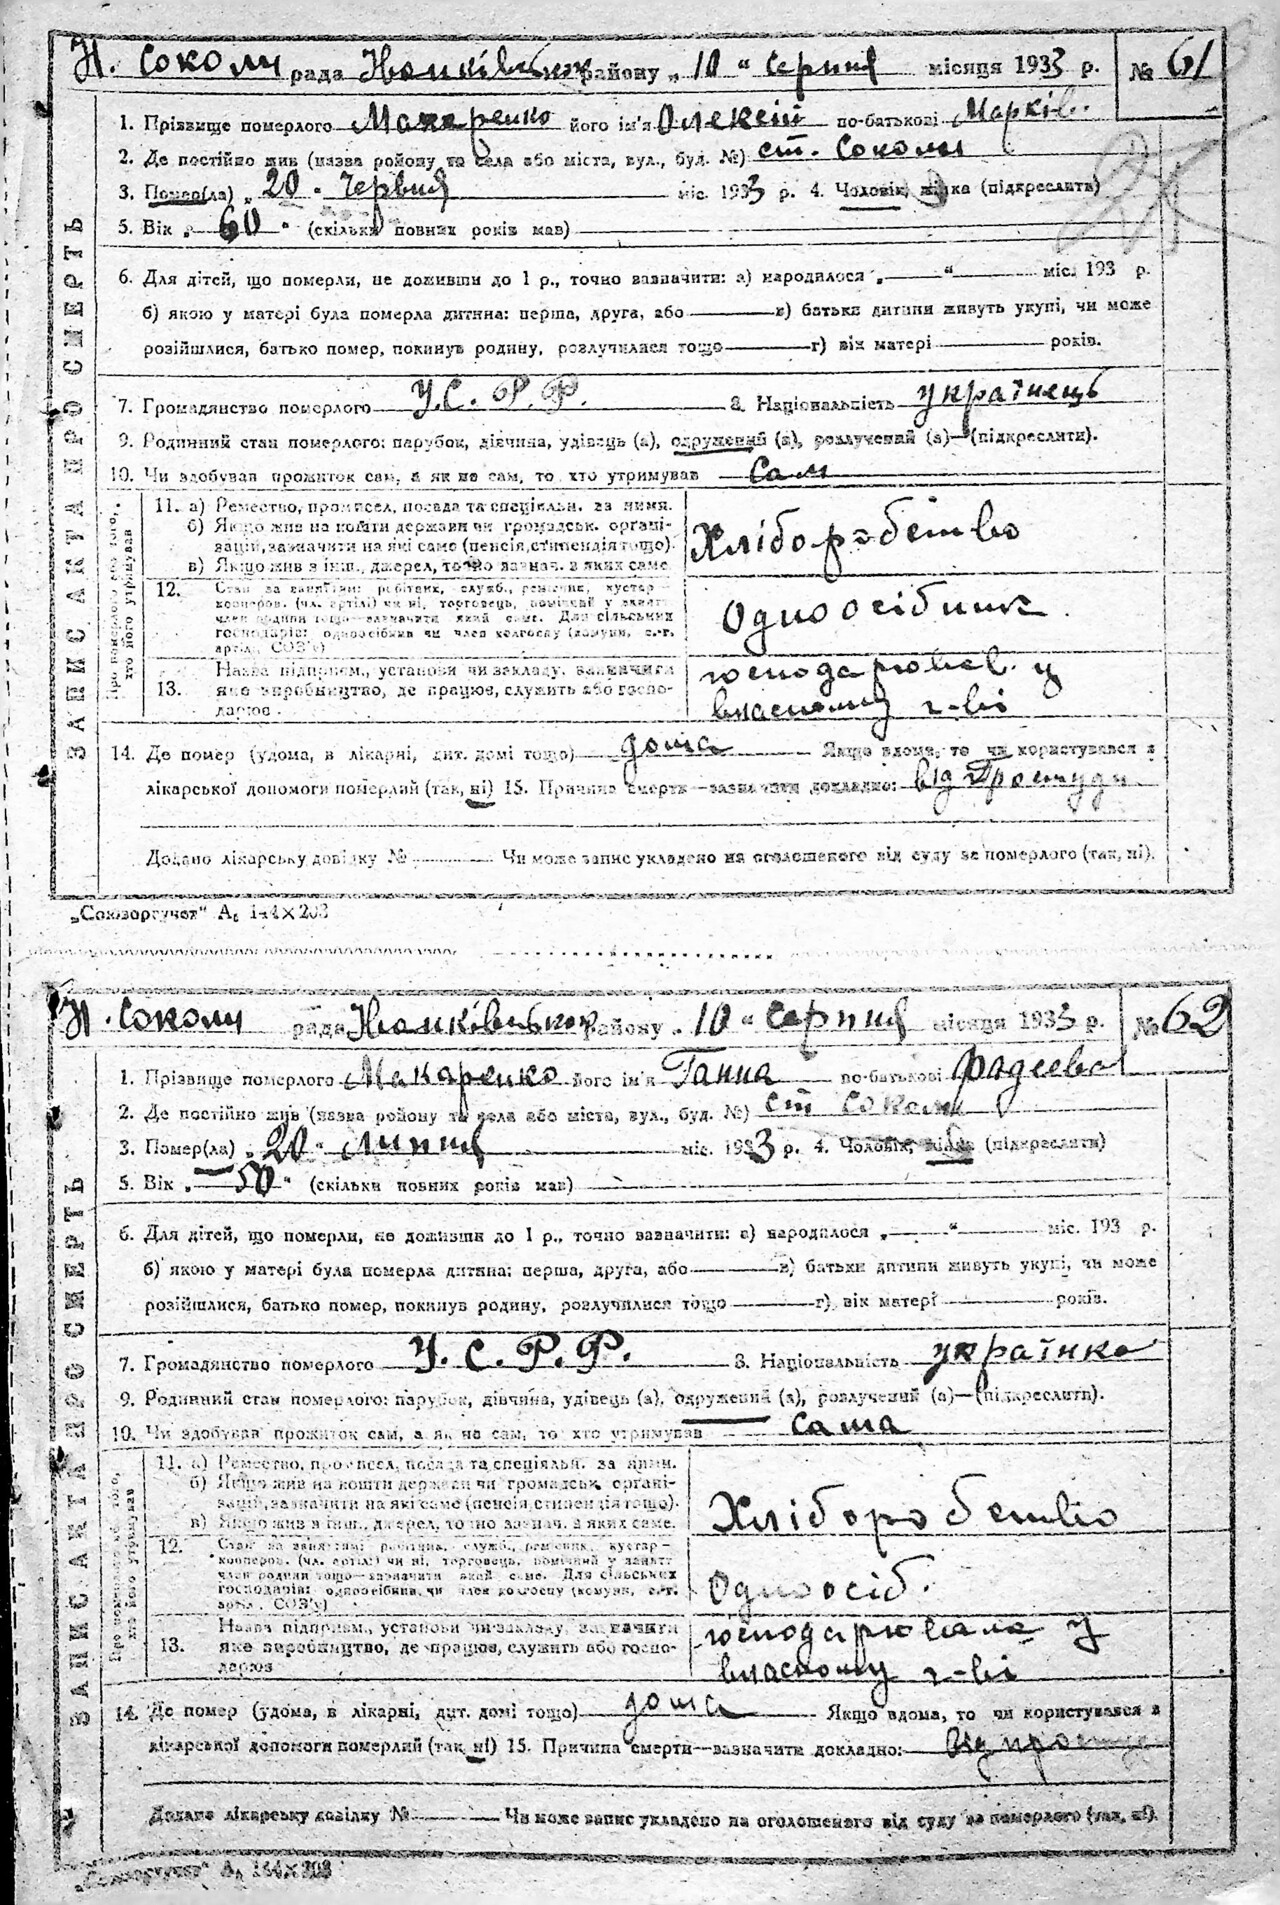 Н. Соколи рада Іванківського району „10" серпня місяця 1933 р. № 61
1. Прізвище померлого Макаренко його ім'я Олексій по-батькові Марків.
2. Де постійно жив (назва району та села або міста, вул., буд. №) ст. Соколи
3. Помер(ла) „20" червня міс. 1933 р. 4. Чоловік, жінка (підкреслити)
5. Вік „60" (скільки повних років мав)
6. Для дітей, що померли, не доживши до 1 р., точно зазначити: а) народилося „ " міс. 193 р.
б) якою у матері була померла дитина: перша, друга, або в) батьки дитини живуть укупі, чи може
розійшлися, батько помер, покинув родину, розлучилися тощо г) вік матері років.
7. Громадянство померлого У.С.Р.Р. 8. Національність українець
9. Родинний стан померлого: парубок, дівчина, удівець (а), одружений (а), розлучений (а)—(підкреслити).
10. Чи здобував прожиток сам, а як не сам, то хто утримував сам
ЗАПИС АКТА ПРО СМЕРТЬ
Про померлого або того, хто його утримував
11. а) Ремество, промисел, посада та спеціяльн. за ними.
б) Якщо жив на кошти держави чи громадськ. органі-
зацій, зазначити на які само (пенсія, стипендія тощо).
в) Якщо жив з інш., джерел, точно зазнач. з яких саме.
Хліборобство
12. Стан за заняттям: робітник, служб., ремісник, кустар-
кооперов. (чл. артілі) чи ні, торговець, помічний у занятт.
член родини тощо—зазначити який саме. Для сільських
господарів: одноосібник чи член колгоспу (комуни, с.-г.
артіл., СОЗ'у)
Одноосібник
13. Назва підприєм., установи чи закладу, зазначити
яке виробництво, де працює, служить або госпо-
дарює
господарював у
власному г-ві
14. Де помер (удома, в лікарні, дит. домі тощо) дома Якщо вдома, то чи користувався з
лікарської допомоги померлий (так, ні) 15. Причина смерти—зазначити докладно: від простуди
Додано лікарську довідку № Чи може запис укладено на оголошеного від суду за померлого (так, ні).
„Союзоргучет" А₆ 144×203
Н. Соколи рада Іванківського району „10" серпня місяця 1933 р. № 62
1. Прізвище померлого Макаренко його ім'я Ганна по-батькові Фадеева
2. Де постійно жив (назва району та села або міста, вул., буд. №) ст Соколи
3. Помер(ла) „20" липня міс. 1933 р. 4. Чоловік, жінка (підкреслити)
5. Вік „50" (скільки повних років мав)
6. Для дітей, що померли, не доживши до 1 р., точно зазначити: а) народилося „ " міс. 193 р.
б) якою у матері була померла дитина: перша, друга, або в) батьки дитини живуть укупі, чи може
розійшлися, батько помер, покинув родину, розлучилися тощо г) вік матері років.
7. Громадянство померлого У.С.Р.Р. 8. Національність українка
9. Родинний стан померлого: парубок, дівчина, удівець (а), одружений (а), розлучений (а)—(підкреслити).
10. Чи здобував прожиток сам, а як не сам, то хто утримував сама
ЗАПИС АКТА ПРО СМЕРТЬ
Про померлого або того, хто його утримував
11. а) Ремество, промисел, посада та спеціяльн. за ними.
б) Якщо жив на кошти держави чи громадськ. органі-
зацій, зазначити на які саме (пенсія, стипендія тощо).
в) Якщо жив з інш., джерел, точно зазнач. з яких саме.
Хліборобство
12. Стан за заняттям: робітник, служб., ремісник, кустар-
кооперов. (чл. артілі) чи ні, торговець, помічний у занятт.
член родини тощо—зазначити який саме. Для сільських
господарів: одноосібник чи член колгоспу (комуни, с.-г.
артіл., СОЗ'у)
Одноосіб.
13. Назва підприєм., установи чи закладу, зазначити
яке виробництво, де працює, служить або госпо-
дарює
господарювала у
власному г-ві
14. Де помер (удома, в лікарні, дит. домі тощо) дома Якщо вдома, то чи користувався з
лікарської допомоги померлий (так, ні) 15. Причина смерти—зазначити докладно: від
Додано лікарську довідку № Чи може запис укладено на оголошеного від суду за померлого (так, ні).
„Союзоргучет" А₆ 144×203